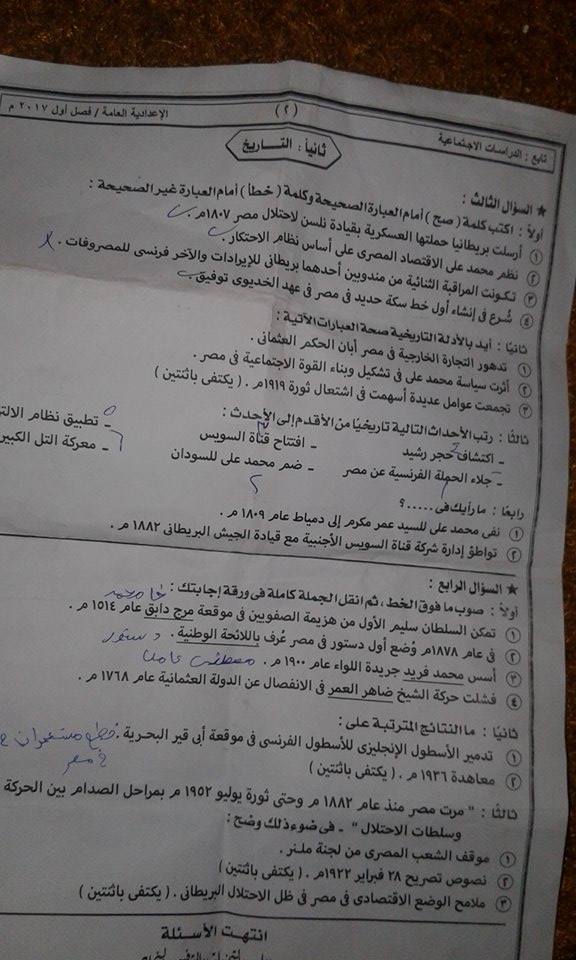 تابع : الدراسات الاجتماعية
( ٢ )
الإعدادية العامة / فصل أول ٢٠١٧ م
ثانياً : التاريخ
★ السؤال الثالث :
أولاً : اكتب كلمة ( صح ) أمام العبارة الصحيحة وكلمة ( خطأ ) أمام العبارة غير الصحيحة :
١ أرسلت بريطانيا حملتها العسكرية بقيادة نلسن لاحتلال مصر ١٨٠٧م .
٢ نظم محمد على الاقتصاد المصرى على أساس نظام الاحتكار .
٣ تكونت المراقبة الثنائية من مندوبين أحدهما بريطانى للإيرادات والآخر فرنسى للمصروفات . x
٤ شُرع فى إنشاء أول خط سكة حديد فى مصر فى عهد الخديوى توفيق .
ثانيًا : أيد بالأدلة التاريخية صحة العبارات الآتية :
١ تدهور التجارة الخارجية فى مصر أبان الحكم العثمانى .
٢ أثرت سياسة محمد على فى تشكيل وبناء القوة الاجتماعية فى مصر .
٣ تجمعت عوامل عديدة أسهمت فى اشتعال ثورة ١٩١٩م . ( يكتفى باثنتين )
ثالثًا : رتب الأحداث التالية تاريخيًا من الأقدم إلى الأحدث :
ـ اكتشاف حجر رشيد ـ افتتاح قناة السويس ـ تطبيق نظام
ـ جلاء الحملة الفرنسية عن مصر ـ ضم محمد على للسودان ـ معركة التل الكبير
رابعًا : ما رأيك فى ..... ؟
١ نفى محمد على للسيد عمر مكرم إلى دمياط عام ١٨٠٩ م .
٢ تواطؤ إدارة شركة قناة السويس الأجنبية مع قيادة الجيش البريطانى ١٨٨٢ م .
★ السؤال الرابع :
أولاً : صوب ما فوق الخط ، ثم انقل الجملة كاملة فى ورقة إجابتك :
١ تمكن السلطان سليم الأول من هزيمة الصفويين فى موقعة مرج دابق عام ١٥١٤ م .
٢ فى عام ١٨٧٨م وُضع أول دستور فى مصر عُرف باللائحة الوطنية . دستور
٣ أسس محمد فريد جريدة اللواء عام ١٩٠٠ م . مصطفى كامل
٤ فشلت حركة الشيخ ضاهر العمر فى الانفصال عن الدولة العثمانية عام ١٧٦٨ م .
ثانيًا : ما النتائج المترتبة على :
١ تدمير الأسطول الإنجليزى للأسطول الفرنسى فى موقعة أبى قير البحرية .
٢ معاهدة ١٩٣٦ م . ( يكتفى باثنتين ) مصر
ثالثًا : " مرت مصر منذ عام ١٨٨٢ م وحتى ثورة يوليو ١٩٥٢ م بمراحل الصدام بين الحركة
وسلطات الاحتلال " ـ فى ضوء ذلك وضح :
١ موقف الشعب المصرى من لجنة ملنر .
٢ نصوص تصريح ٢٨ فبراير ١٩٢٢م . ( يكتفى باثنتين )
٣ ملامح الوضع الاقتصادى فى مصر فى ظل الاحتلال البريطانى . ( يكتفى باثنتين )
انتهت الأسئلة